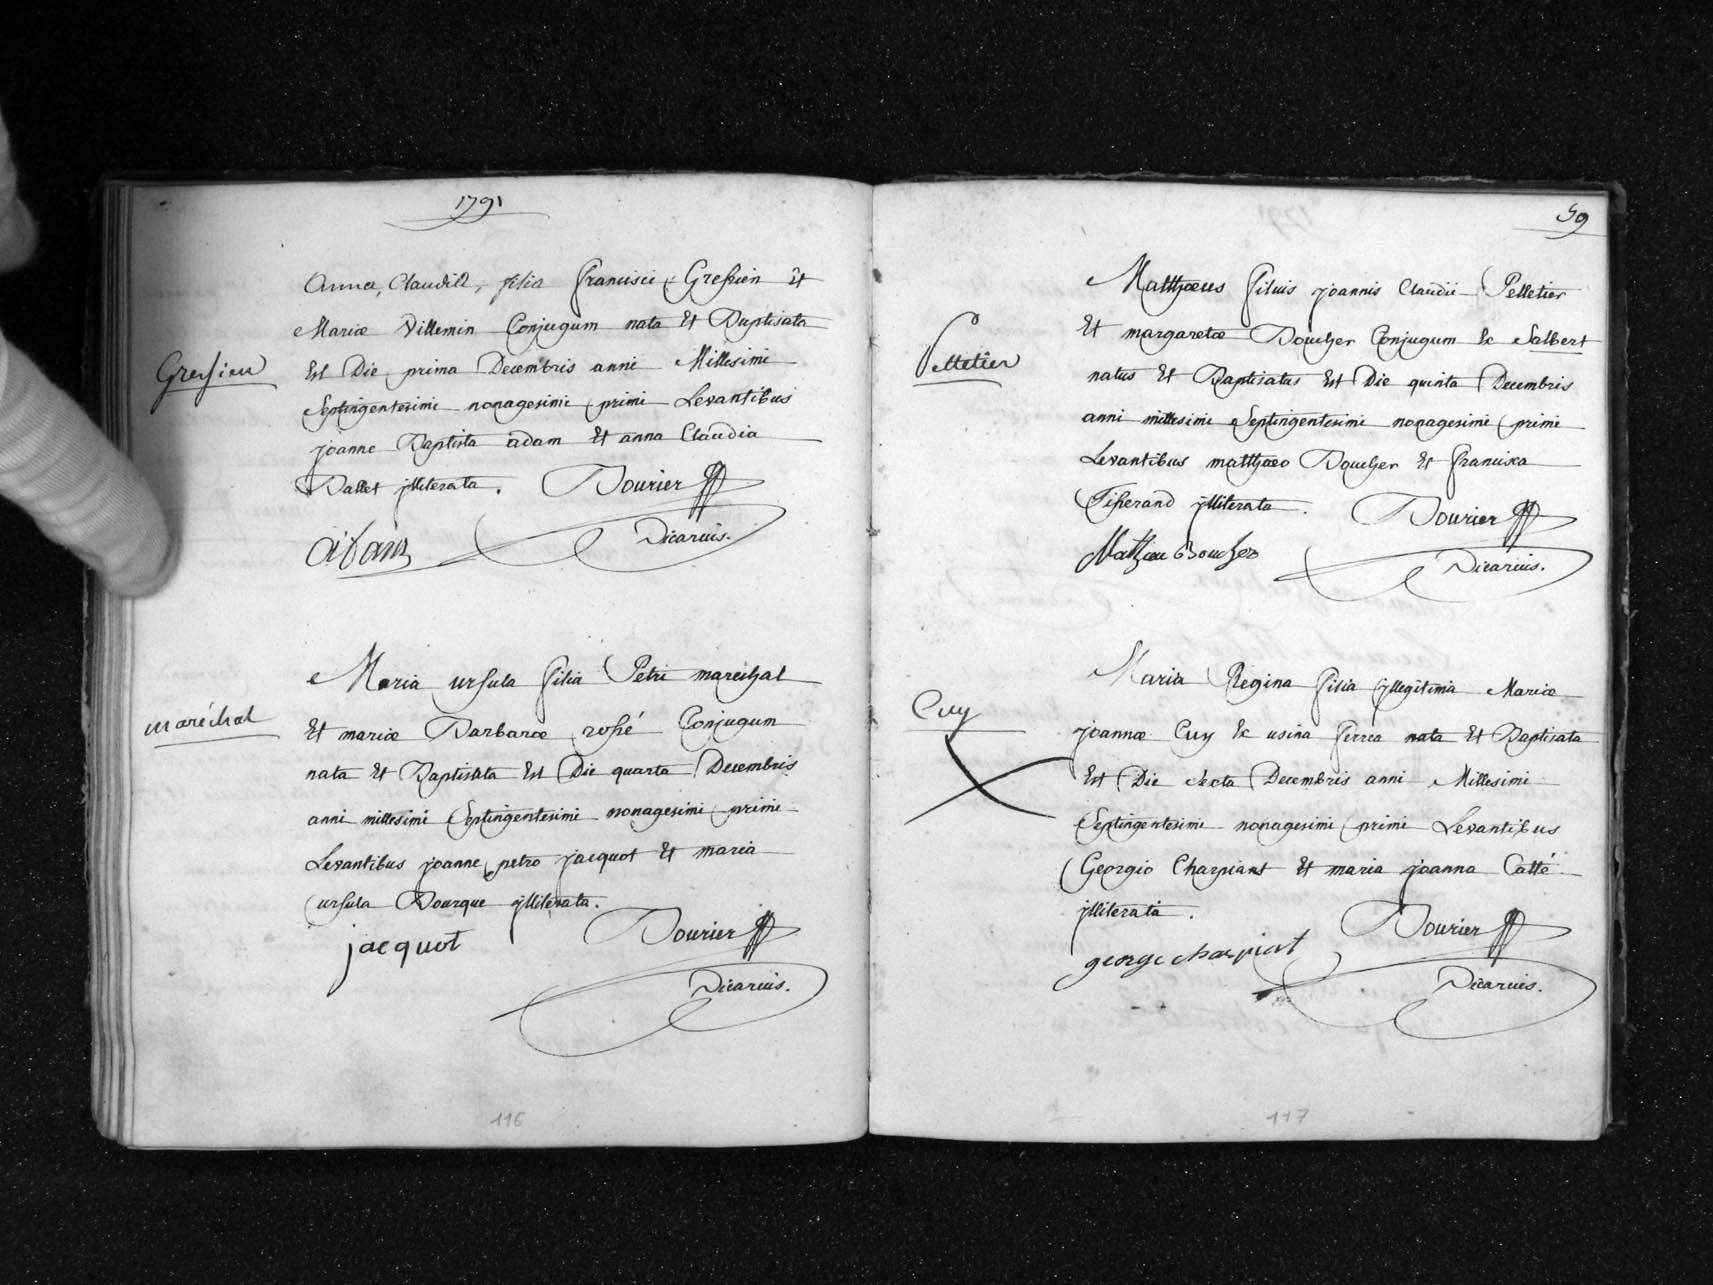 1791
Anna, Claudia, filia francisci Gressien Et
Mariæ Villemin Conjugum nata Et Baptisata
Gressien
Est Die prima Decembris anni Millesimi
Septingentesimi nonagesimi primi Levantibus
joanne Baptista adam Et anna Claudia
Ballet jlliterata. Bourier
adam
Vicarius.
Maria ursula filia Petri marechal
maréchal
Et mariæ Barbaræ rossé Conjugum
nata Et Baptisata Est Die quarta Decembris
anni millesimi Septingentesimi nonagesimi primi
Levantibus joanne petro jacquot Et maria
ursula Bourque jlliterata.
jacquot
Bourier
Vicarius.
116
59
Matthæus filius joannis Claudii Pelletier
Et margaretæ Boucher Conjugum Ex Salbert
Pelletier
natus Et Baptisatus Est Die quinta Decembris
anni millesimi Septingentesimi nonagesimi primi
Levantibus matthæo Boucher Et francisca
Tisserand jlliterata. Bourier
Mathieu Boucher
Vicarius.
Maria Regina filia jllegitima Mariæ
Cuy
joannæ Cuy Ex usina ferrea nata Et Baptisata
Est Die Sexta Decembris anni Millesimi
Septingentesimi nonagesimi primi Levantibus
Georgio Charpiant Et maria joanna Catté
jlliterata.
Bourier
george charpiat
Vicarius.
117